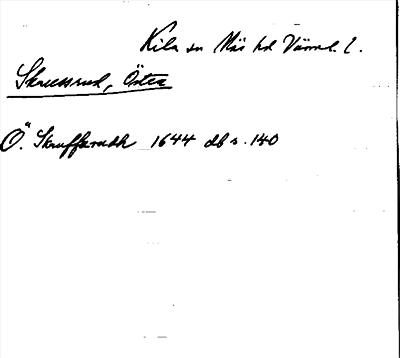 Kila sn Näs hd Värml. l.
Skruvsrud, Östra
Ö. Skruffzrudh 1644 db s. 140